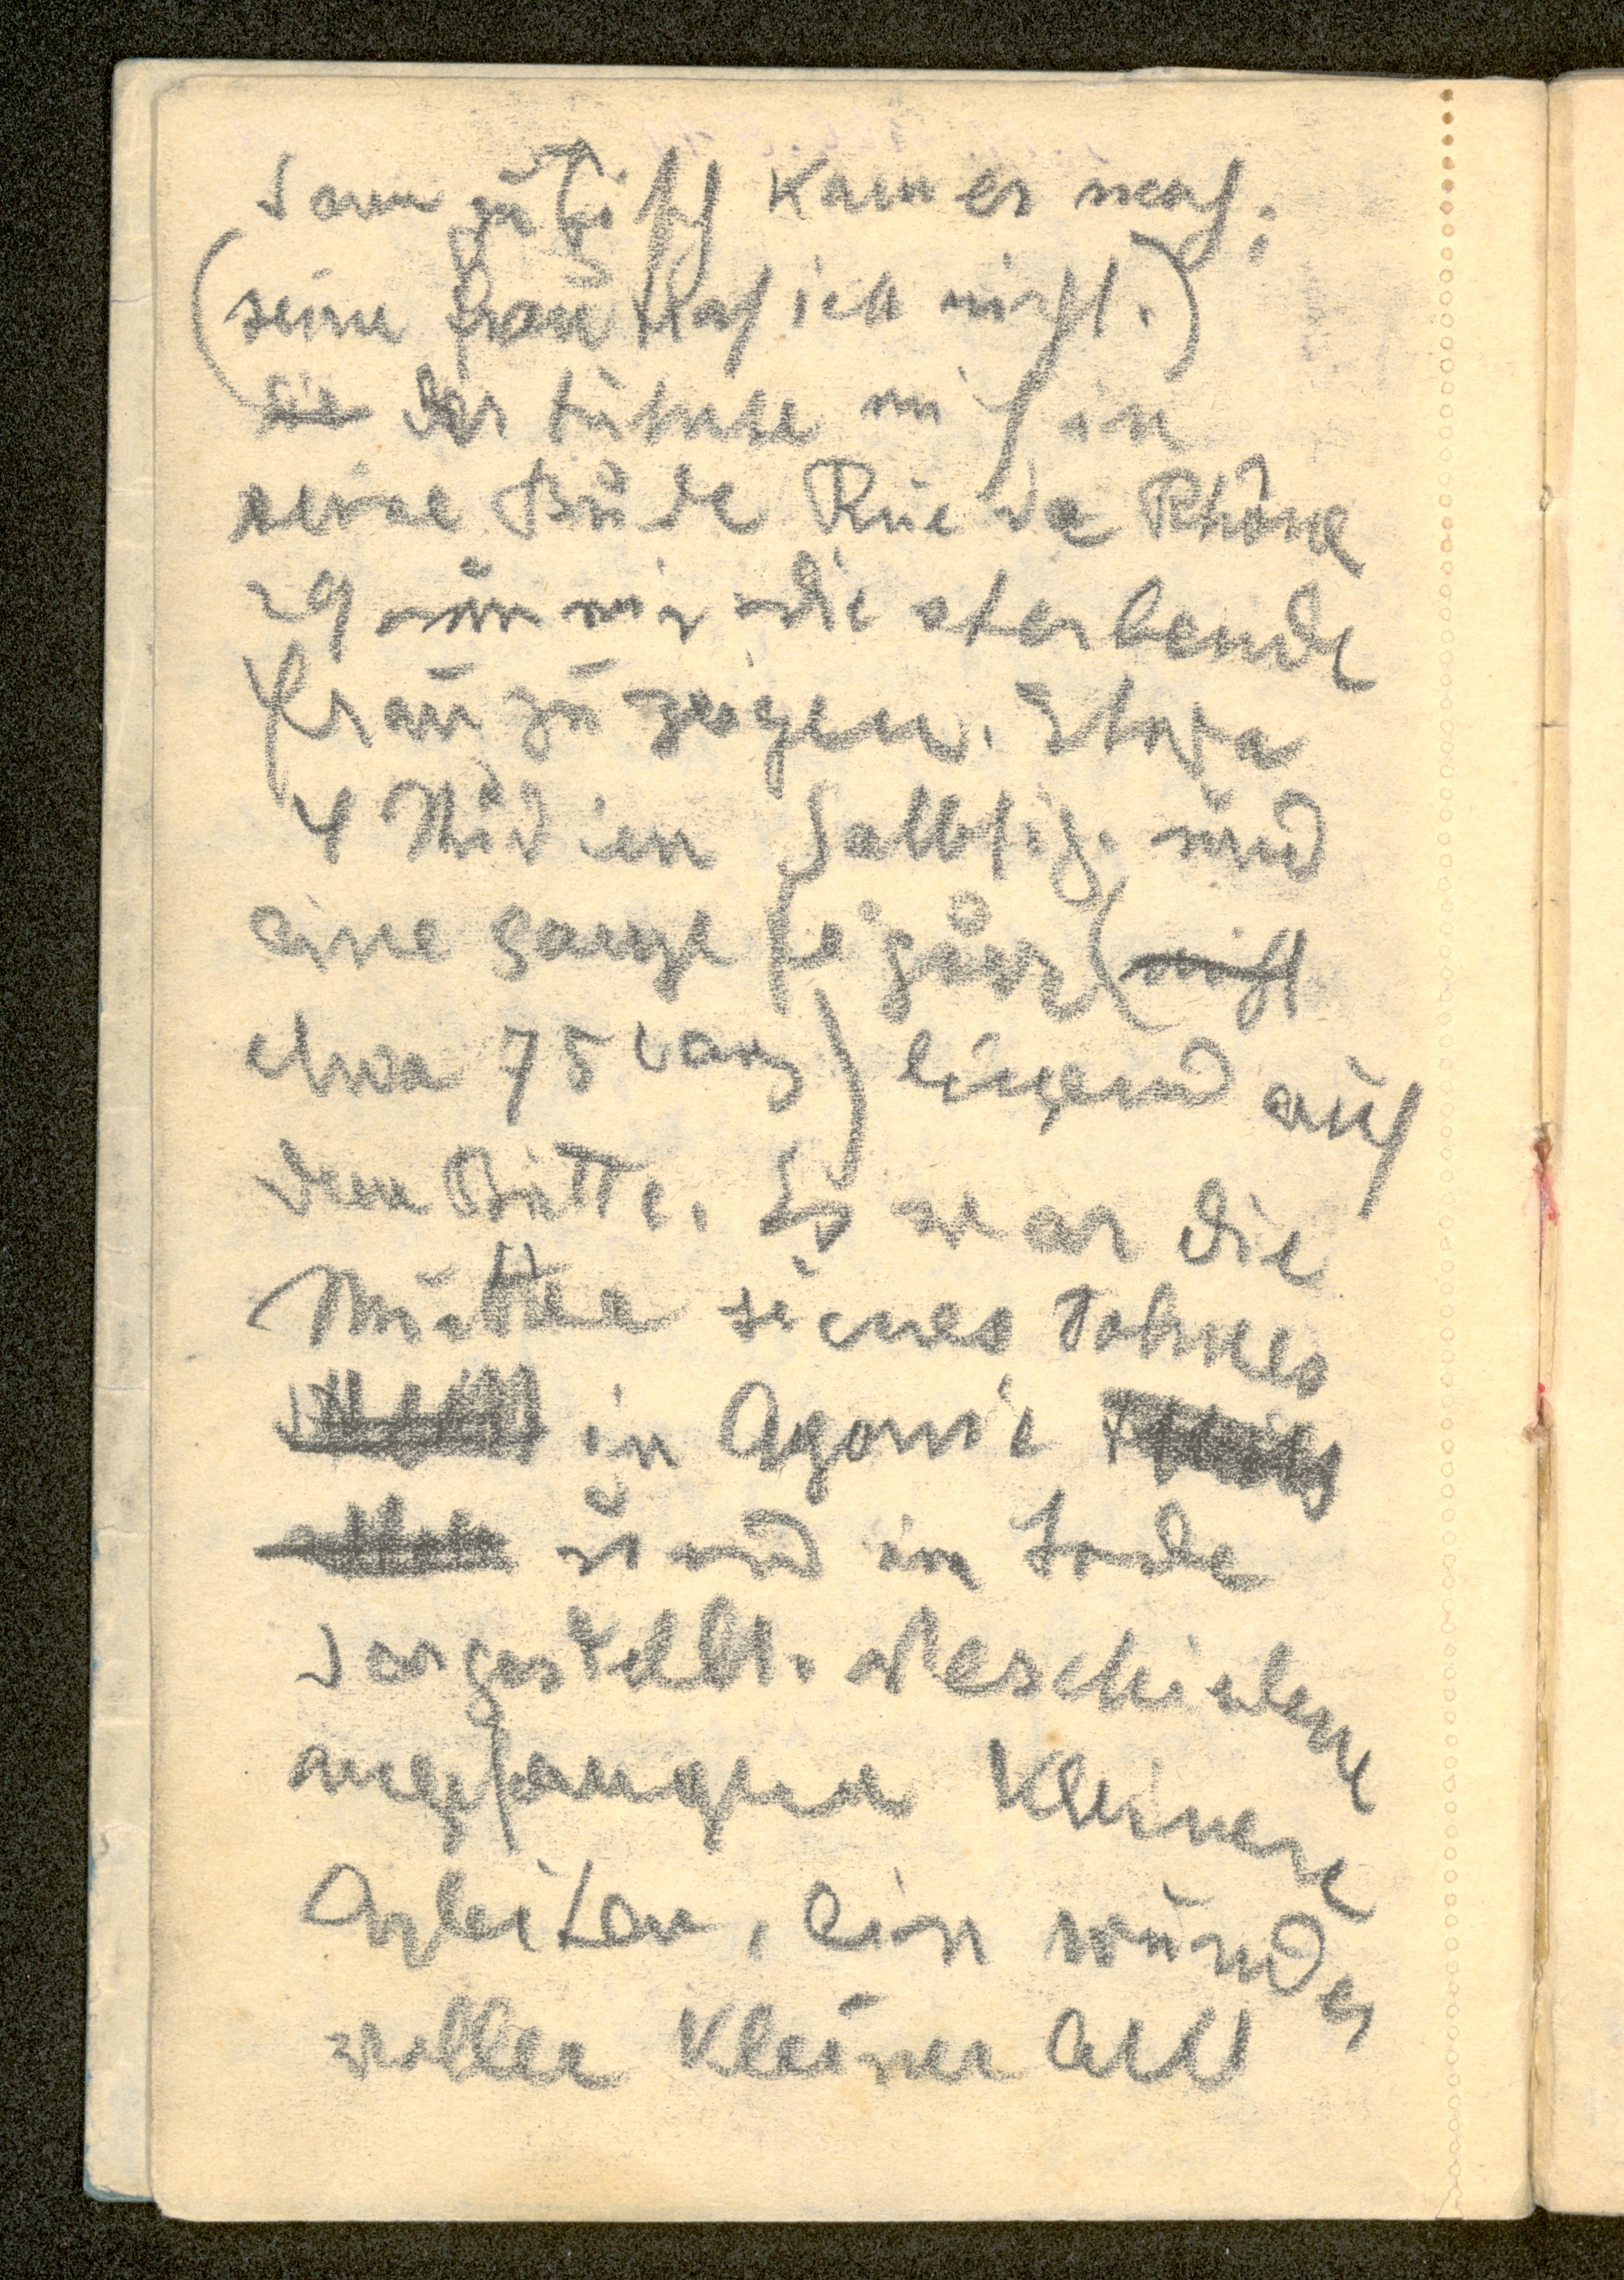 Dann zu Tisch kam er nach;
(seine Frau sah ich nicht.)
sie der führte mich in
seine Bude Rue du Rhône
29 um mir die sterbende
Frau zu zeigen. Etwa
4 Studien halbfig. und
eine ganze Figur (nicht
etwa 75 lang) liegend auf
dem Bette. Es war die
Mutter seines Sohnes
in Agonie
und im Tode
dargestellt. Verschiedene
angefangene kleinere
Arbeiten, ein wunder
voller kleiner Akt